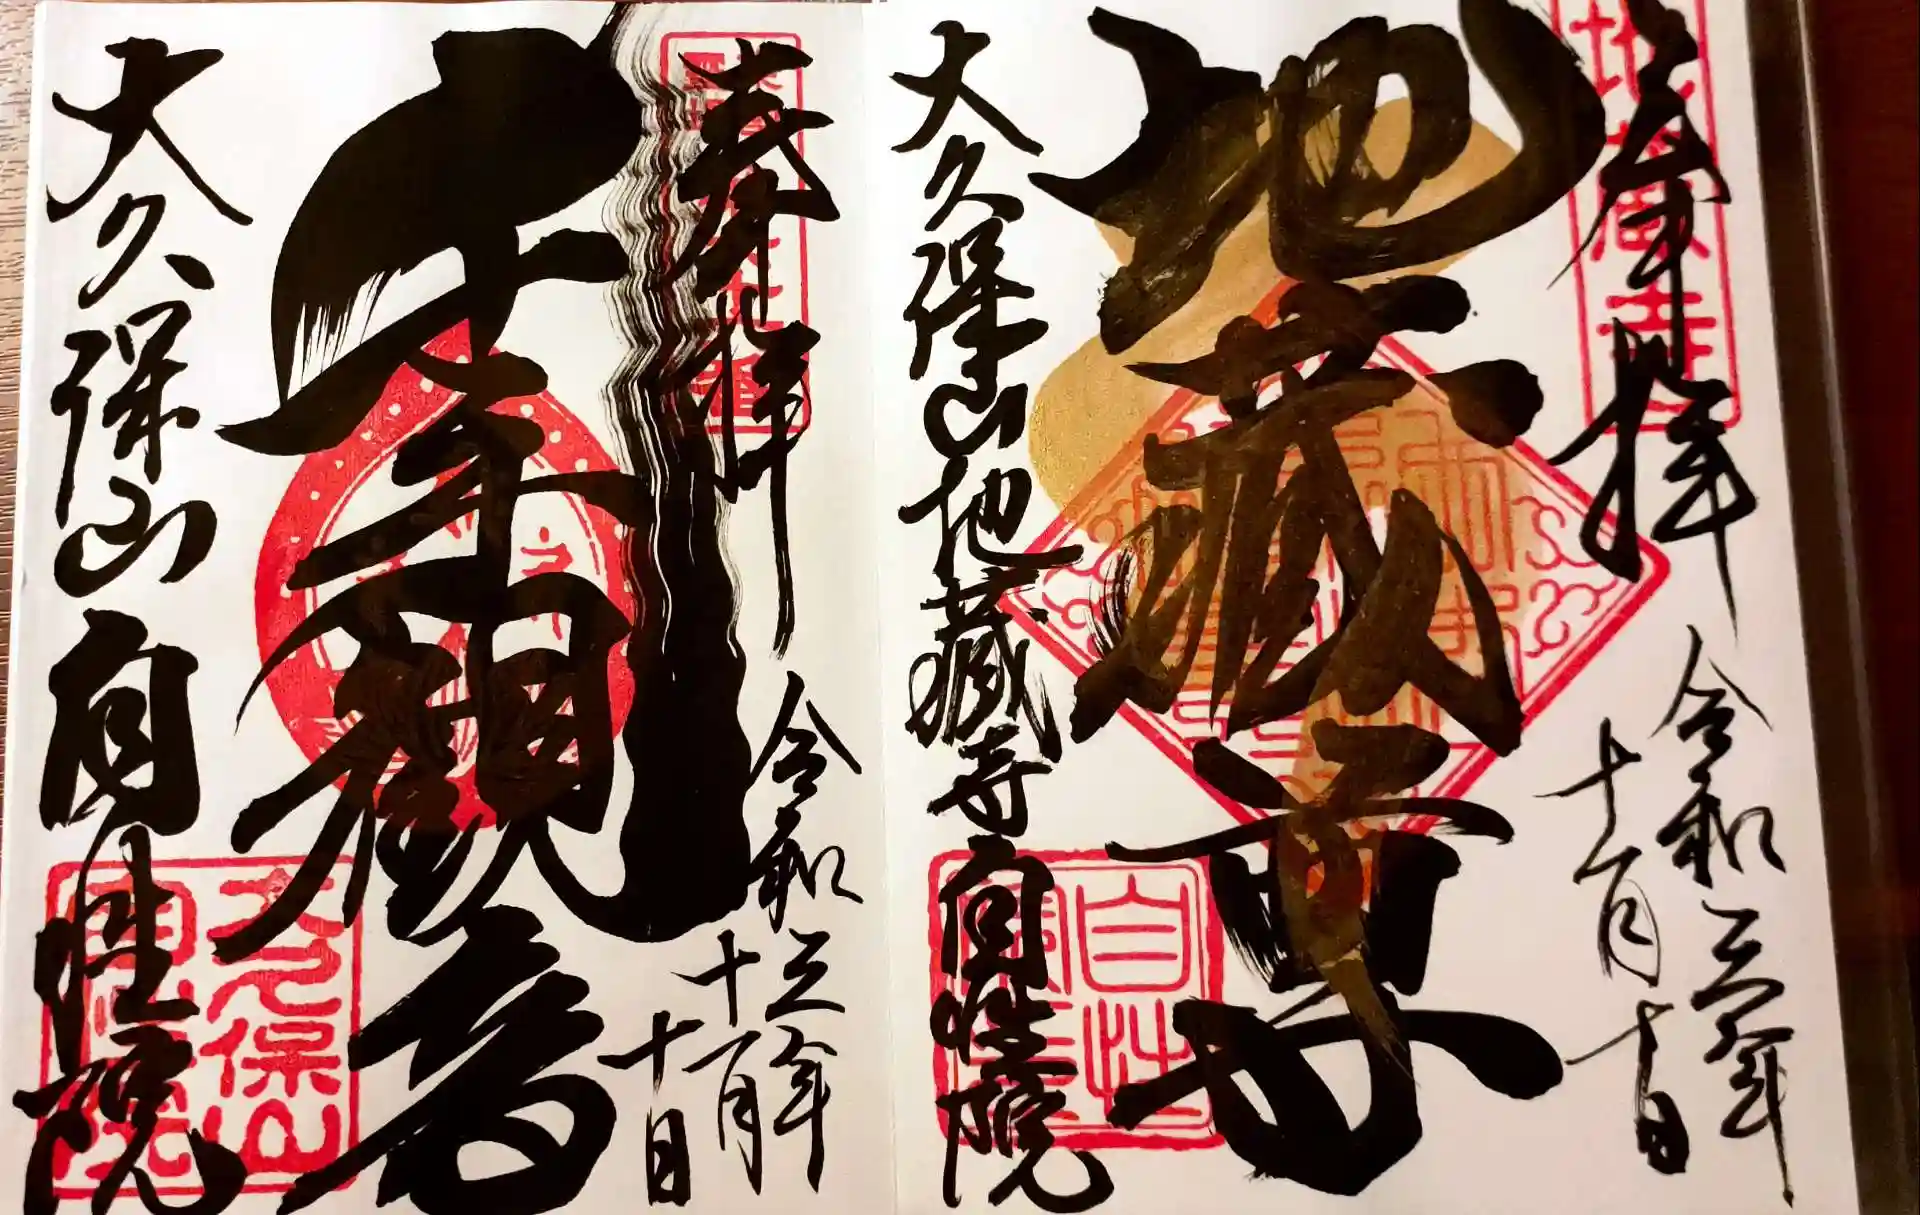 奉拝
地蔵寺
令和三年
十一月十日
地蔵尊
大久保山地蔵寺自性院
自性
奉拝
令和三年
十一月十日
千手観音
大久保山自性院
大久保山